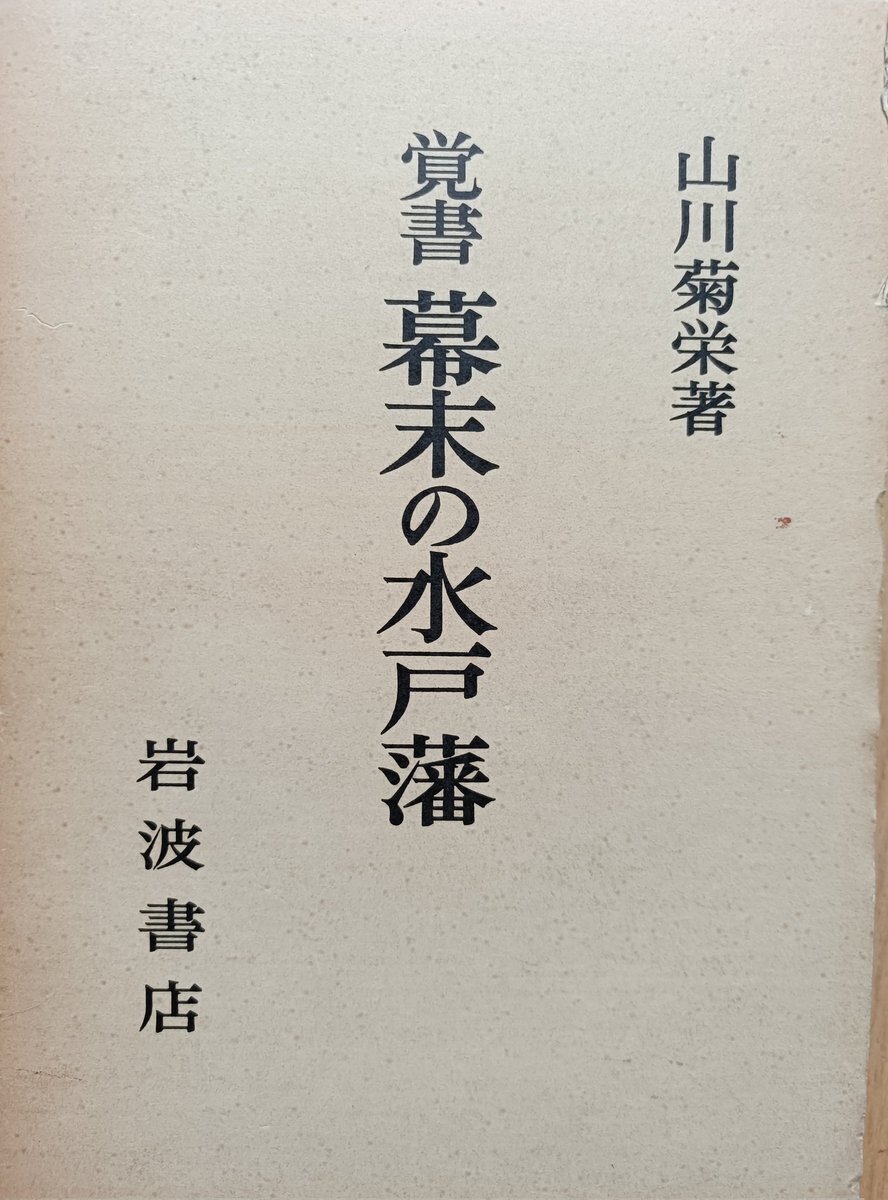 山川菊栄著
覚書 幕末の水戸藩
岩波書店